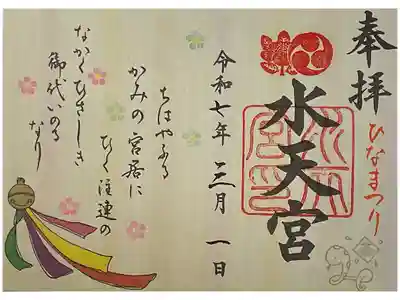 奉拝
ひなまつり
水天宮
令和七年 三月 一日
ちはやふる
かみの宮居に
ひく注連の
なかくひさしき
御代いのる
なり